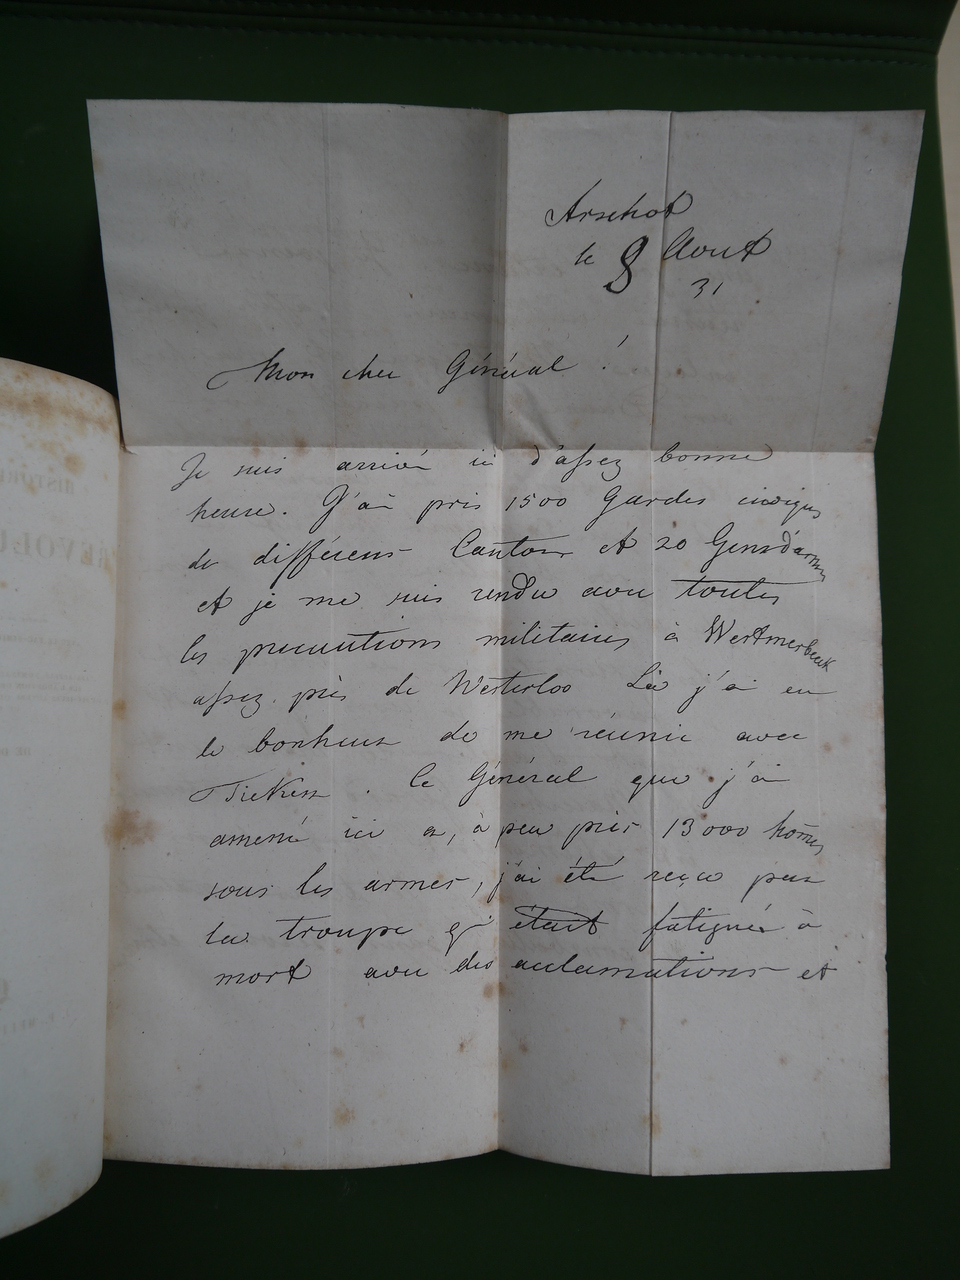 Arschot
le 8 Aout
31
Mon cher Général !
Je suis arrivé ici d'assez bonne
heure. J'ai pris 1500 Gardes civiques
de différens Cantons et 20 Gensd'armes
et je me suis rendu avec toutes
les precautions militaires à Westmerbeek
assez près de Westerloo Là j'ai eu
le bonheur de me réunir avec
Tieken. Le Général que j'ai
amené ici a, à peu près 13000 hom̄es
sous les armes, j'ai été reçu par
la troupe q' était fatiguée à
mort avec des acclamations et
HISTOIRE
RÉVOLU